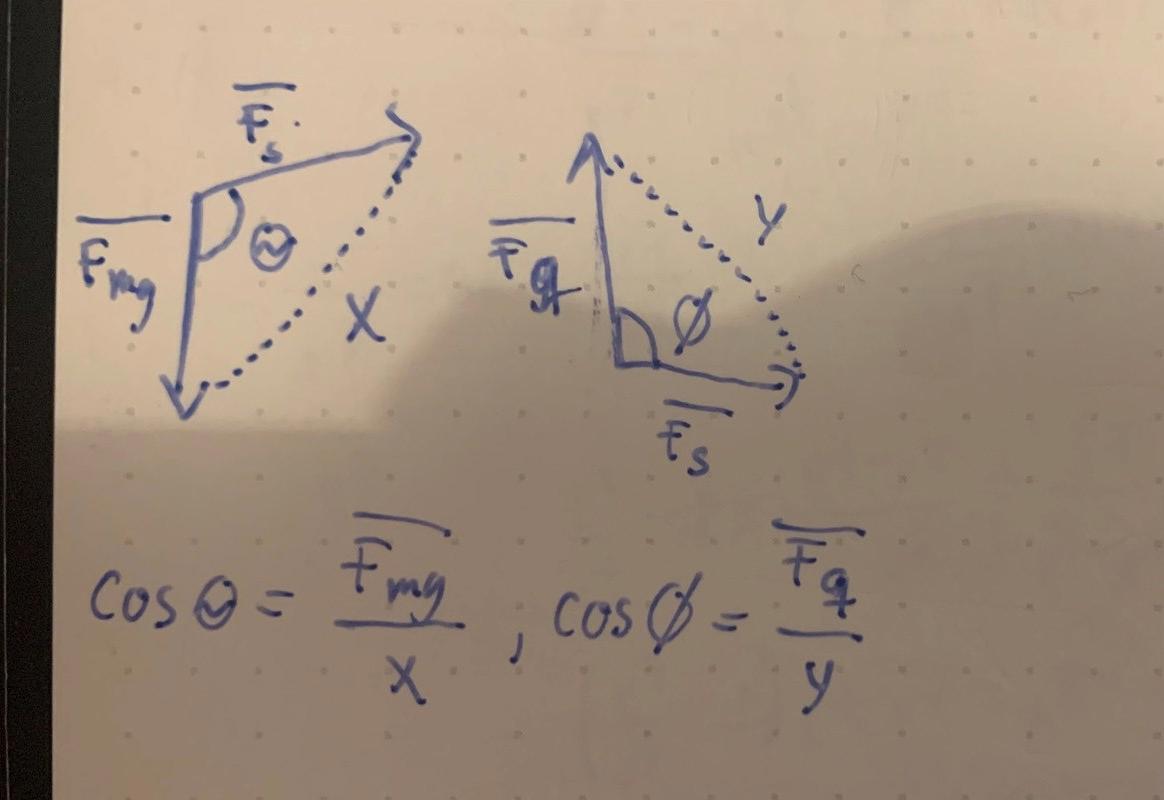 F̅s
F̅mg
Θ
X
F̅q
Y
ϕ
F̅s
cos Θ = F̅mg / X , cos ϕ = F̅q / y